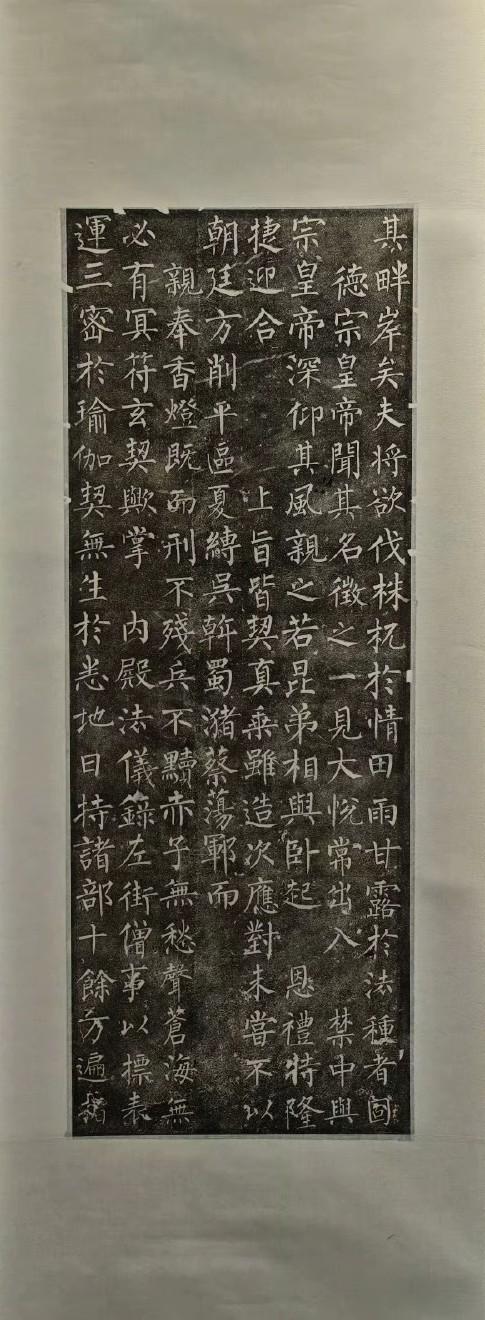 其畔岸矣夫将欲伐株杌於情田雨甘露於法種者固
德宗皇帝聞其名徵之一見大悅常出入 禁中與
宗皇帝深仰其風親之若昆弟相與卧起 恩禮特隆
捷迎合 上旨皆契真乘雖造次應對未嘗不以
朝廷方削平區夏縛吳斡蜀瀦蔡蕩鄆而
親奉香燈既而刑不殘兵不黷赤子無愁聲蒼海無
必有冥符玄契歟掌 內殿法儀錄左街僧事以標表
運三密於瑜伽契無生於悉地日持諸部十餘万遍指